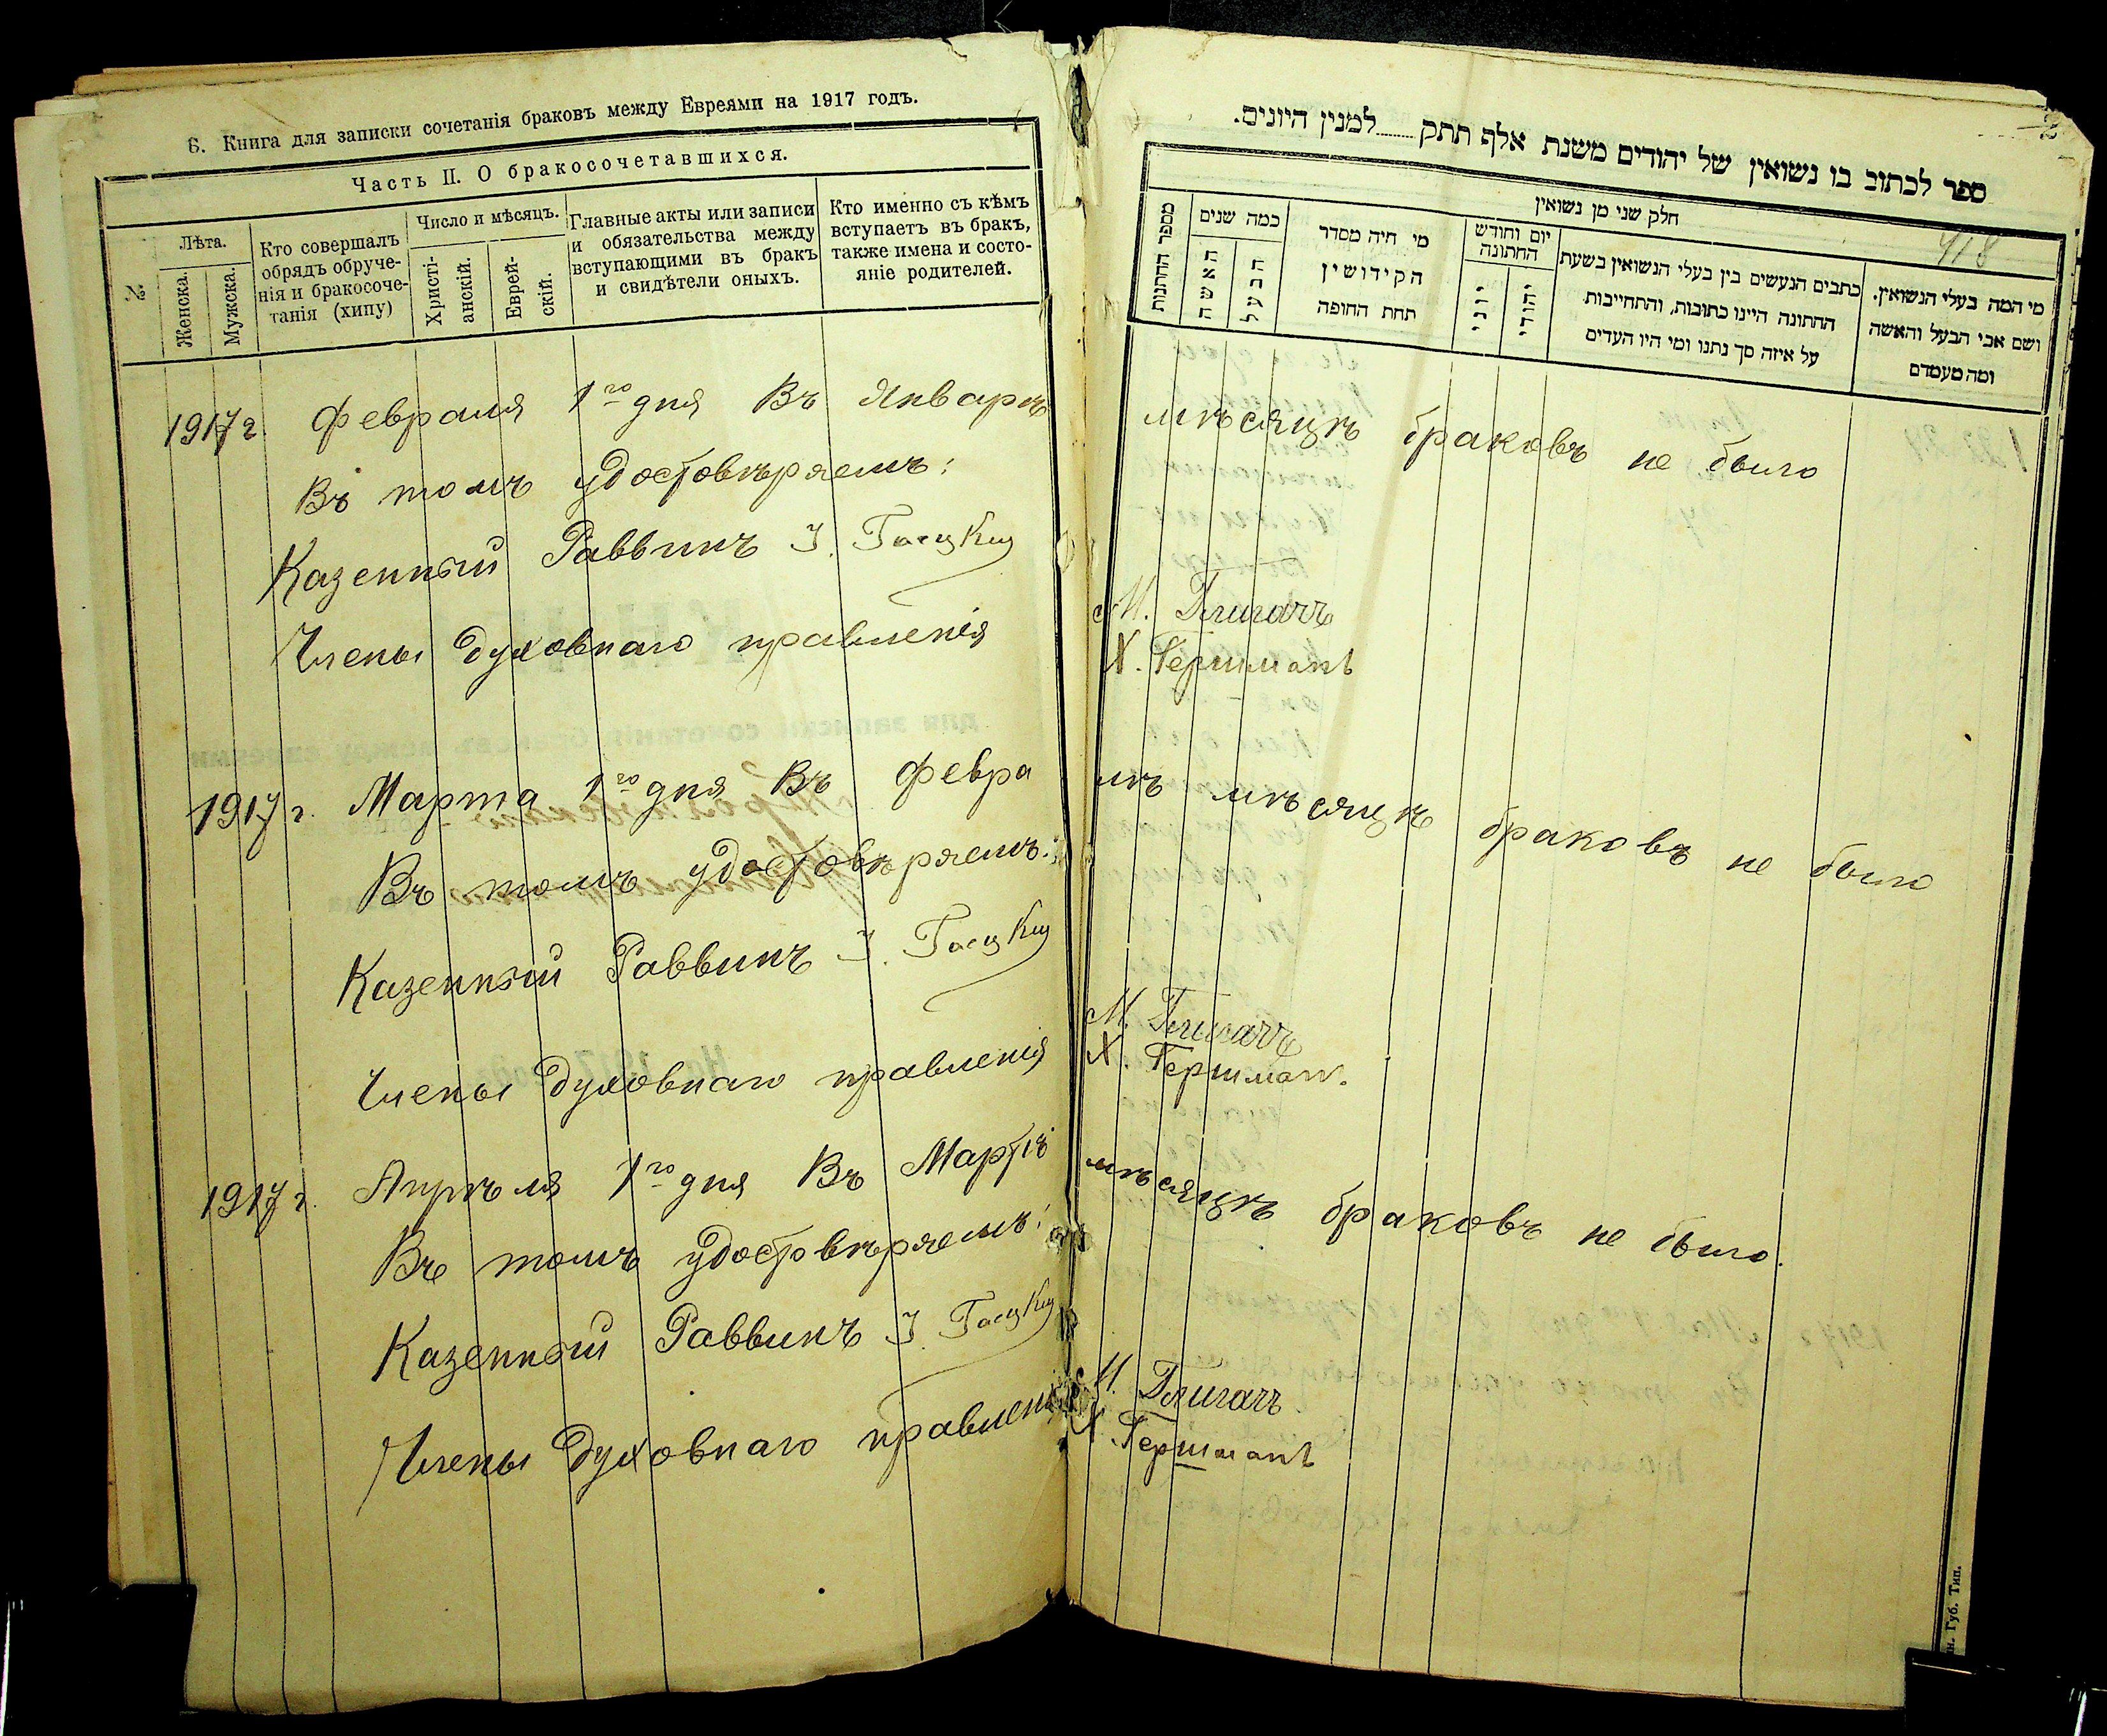 6. Книга для записки сочетанія браковъ между Евреями на 1917 годъ.
Часть II. О бракосочетавшихся.
№
Лѣта.
Женска.
Мужска.
Кто совершалъ
обрядъ обруче-
нія и бракосоче-
танія (хипу)
Число и мѣсяцъ.
Христі-
анскій.
Еврей-
скій.
Главные акты или записи
и обязательства между
вступающими въ бракъ
и свидѣтели оныхъ.
Кто именно съ кѣмъ
вступаетъ въ бракъ,
также имена и состо-
яніе родителей.
ספר לכתוב בו נשואין של יהודים משנת אלף תתק למנין היונים.
חלק שני מן נשואין
418
מספר החתנות
כמה שנים
האשה
הבעל
מי היה מסדר
הקידושין
תחת החופה
יום וחודש
החתונה
יוני
יהודי
כתבים הנעשים בין בעלי הנשואין בשעת
החתונה היינו כתובות, והתחייבות
על איזה סך נתנו ומי היו העדים
מי המה בעלי הנשואין.
ושם אבי הבעל והאשה
ומה מעמדם
1917 г. Февраля 1го дня Въ Январѣ мѣсяцѣ браковъ не было
Въ томъ удостовѣряемъ:
Казенный Раввинъ І.
Члены духовнаго правленія М.
Х. Гершманъ
1917 г. Марта 1го дня Въ Февралѣ мѣсяцѣ браковъ не было
Въ томъ удостовѣряемъ:
Казенный Раввинъ І.
Члены духовнаго правленія М.
Х. Гершман.
1917 г. Апрѣля 1го дня Въ Мартѣ мѣсяцѣ браковъ не было.
Въ томъ удостовѣряемъ:
Казенный Раввинъ І.
Члены духовнаго правленія М.
Х. Гершманъ
Губ. Тип.